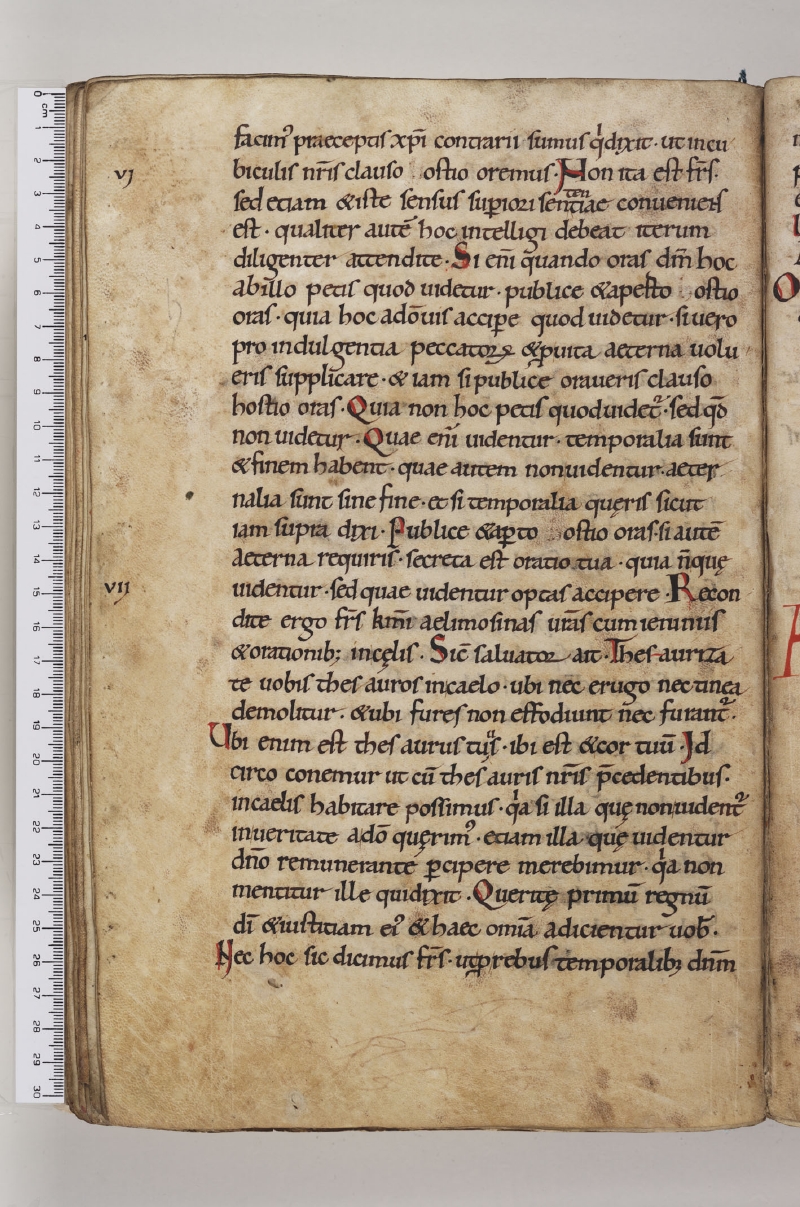 facim᾽ praeceptis xp̄i contrarii sumus qd̓ dixit· ut in cu
vj
biculis nr̄is clauso ostio oremus· Non ita est fr̄s·
sed etiam & iste sensus superiori sententiae conueniens
est· qualiter autē hoc intelligi debeat iterum
diligenter attendite· Si eni̅ quando oras dm̄ hoc
ab illo petis quod uidetur· publice & apesto ostio
oras· quia hoc ad̄o uis accip̱e quod uidetur· si uero
pro indulgentia peccatoꝝ & ꝓ uita aeterna uolu
eris supplicare· & iam si publice oraueris clauso
hostio oras· Quia non hoc petis quod uidet᷑· sed qd̄
non uidetur· Quae eni̅ uidentur· temporalia sunt
& finem habent· quae autem non uidentur· aeter
nalia sunt sine fine· et si temporalia queris sicut
iam supra dixi· Publice & aꝑto ostio oras· si autē
aeterna requiris· secreta est oratio tua· quia n̄ quę
vii
uidentur· sed quae uidentur optas accipere· Recon
dite ergo fr̄s km̄i aelimosinas ur̄as cum ieiuniis
& orationib; in cęlis· Sic̄ saluator ait· Thesauriza
te uobis thesauros in caelo· ubi nec erugo nec tinea
demolitur· & ubi fures non effodiunt nec furant᷑·
Ubi enim est thesaurus tuus· ibi est & cor tuū· Id
circo conemur ut cū thesauris nr̄is p̄cedentibus·
in caelis habitare possimus· qa̓ si illa quę non uident᷑
in ueritate a dō querim᾽· etiam illa quę uidentur
dn̄o remunerante ꝑcipere merebimur· qa̓ non
mentitur ille qui dixit· Querite primū regnū
dī & iustitiam ei᾽ & haec omīa adicientur uob̄·
Nec hoc sic dicimus fr̄s· ut p̱ rebus temporalib; dnm̄